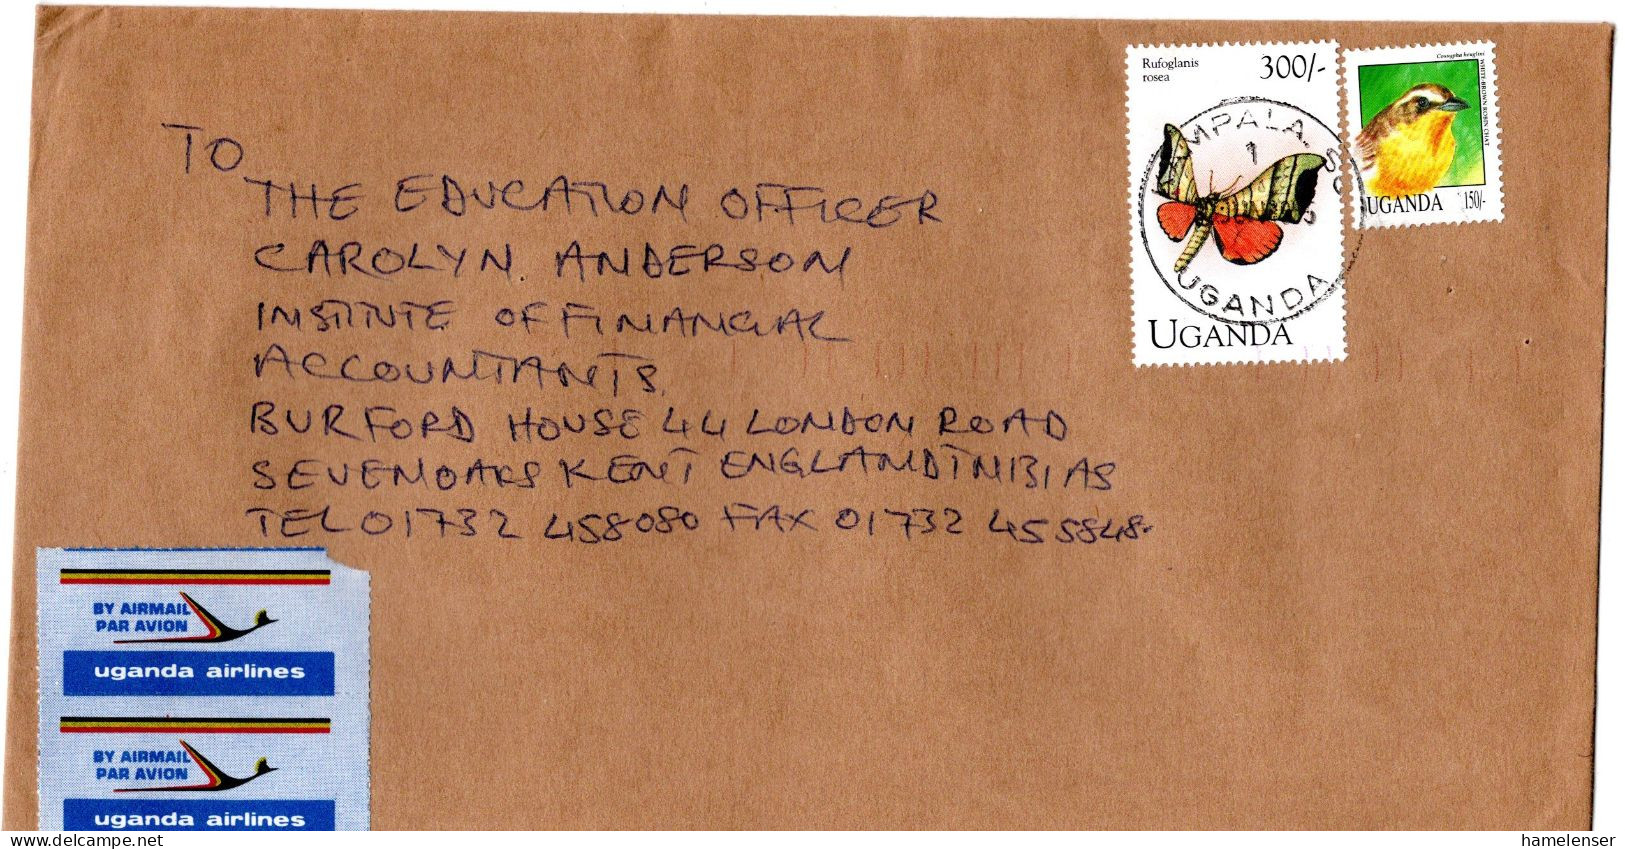 TO
THE EDUCATION OFFICER
CAROLYN ANDERSON
INSTITUTE OF FINANCIAL
ACCOUNTANTS
BURFORD HOUSE 44 LONDON ROAD
SEVENOAKS KENT ENGLAND TN131AS
TEL 01732 458080 FAX 01732 455848
Rufoglanis
rosea
300/-
KAMPALA
1
UGANDA
UGANDA
Cossypha heuglini
WHITE-BROWN ROBIN CHAT
UGANDA 150/-
BY AIRMAIL
PAR AVION
uganda airlines
BY AIRMAIL
PAR AVION
uganda airlines
hamelenser